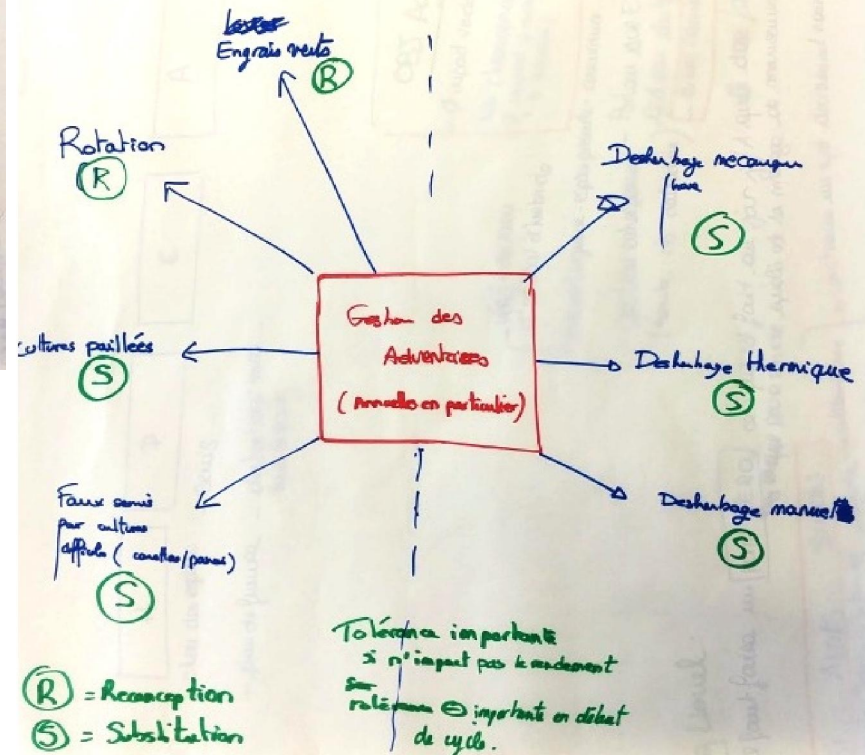 Engrais verts
R
Rotation
R
Desherbage mecanique
S
Gestion des
Adventices
(Annuelles en particulier)
cultures paillées
S
Desherbage thermique
S
Faux semis
par cultures
difficiles (carottes/panais)
S
Desherbage manuel
S
Tolérance importante
si n'impact pas le rendement
tolérance ⊖ importante en début
de cycle.
R = Reconception
S = Substitution